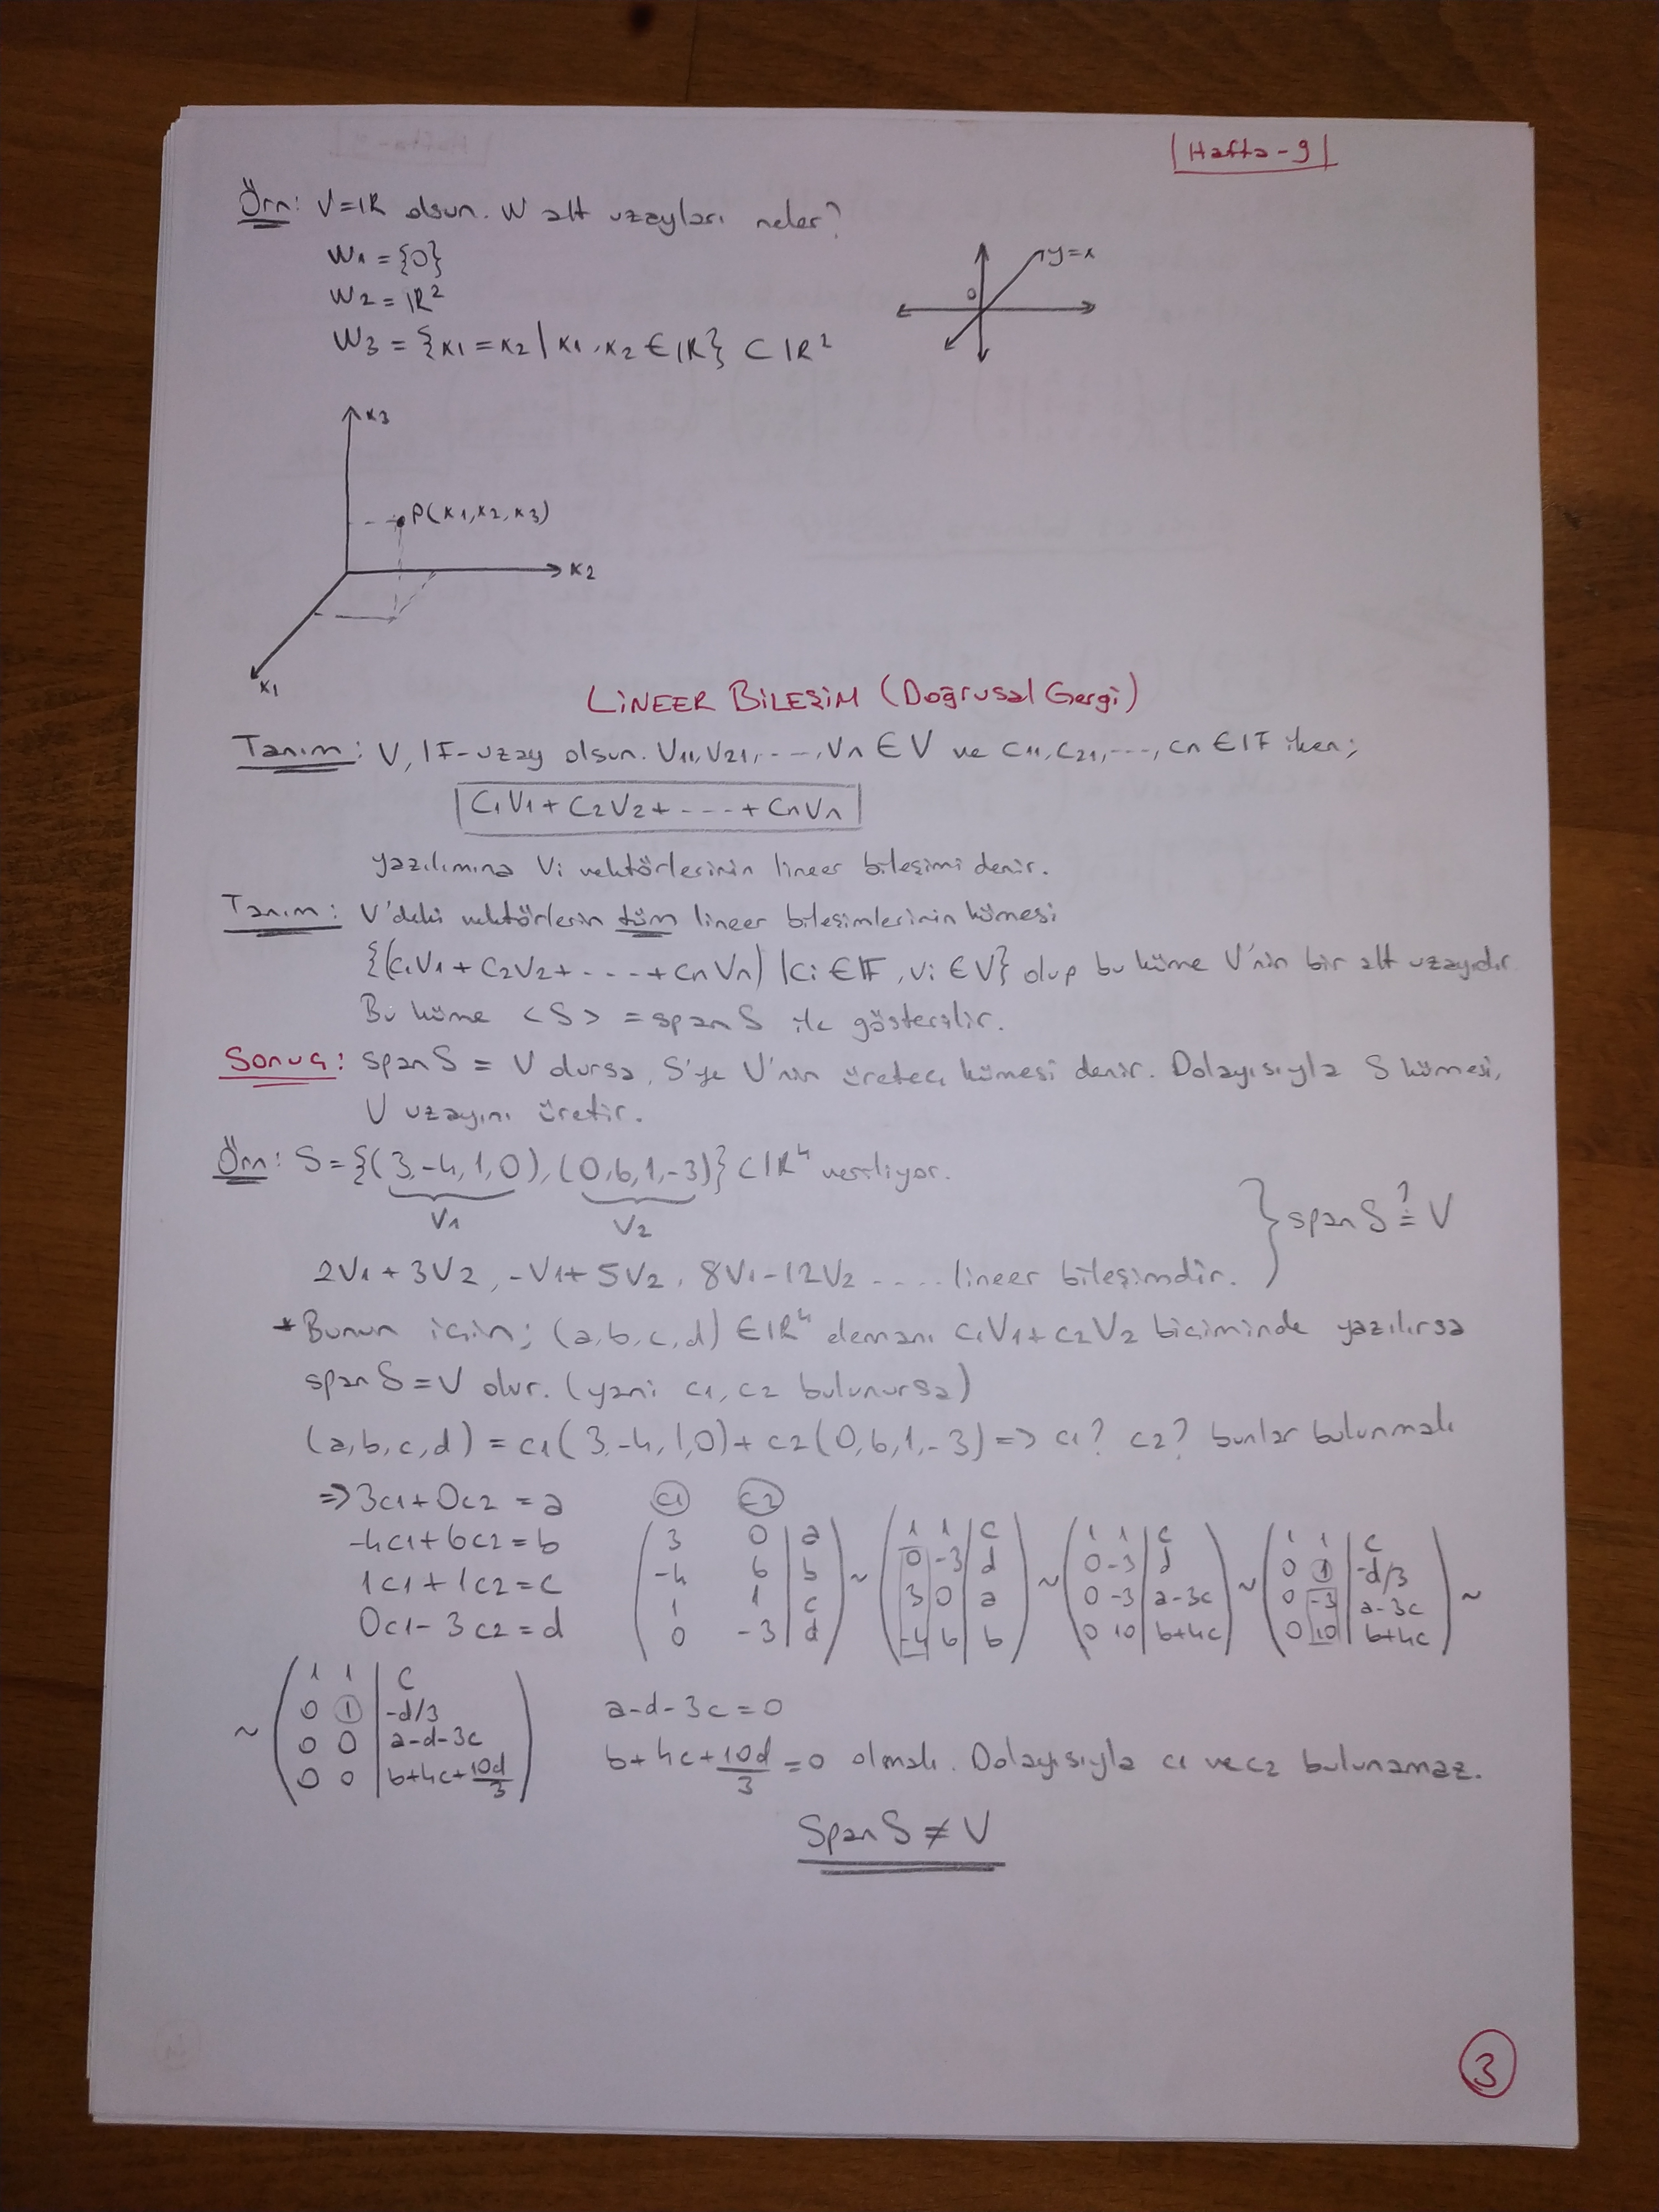 |Hafta-9|
Örn: V=IR olsun. W alt uzayları neler?
W1 = {0}
W2 = IR2
W3 = {x1=x2 | x1,x2 ∈ IR} ⊂ IR2
y=x
0
x3
P(x1,x2,x3)
x2
x1
LİNEER BİLEŞİM (Doğrusal Gergi)
Tanım: V, IF-uzay olsun. V1,V2,----,Vn ∈ V ve C1,C2,---,cn ∈ IF iken;
C1V1+C2V2+----+CnVn
yazılımına Vi vektörlerinin lineer bileşimi denir.
Tanım: V'deki vektörlerin tüm lineer bileşimlerinin kümesi
{(C1V1+C2V2+----+CnVn) | Ci ∈ IF, Vi ∈ V} olup bu küme V'nin bir alt uzayıdır.
Bu küme <S> = span S ile gösterilir.
Sonuç: span S = V olursa, S'ye V'nin üreteç kümesi denir. Dolayısıyla S kümesi,
V uzayını üretir.
Örn: S={(3,-4,1,0),(0,6,1,-3)} ⊂ IR4 veriliyor.
V1 V2
span S ?= V
2V1+3V2, -V1+5V2, 8V1-12V2 ---- lineer bileşimdir.
* Bunun için; (a,b,c,d) ∈ IR4 elemanı C1V1+C2V2 biçiminde yazılırsa
span S=V olur. (yani c1,c2 bulunursa)
(a,b,c,d) = c1(3,-4,1,0)+c2(0,6,1,-3) => c1? c2? bunlar bulunmalı
=> 3c1+0c2 = a
-4c1+6c2 = b
1c1+1c2 = c
0c1-3c2 = d
c1 c2
( 3 0 | a ) ~ ( 1 1 | c ) ~ ( 1 1 | c ) ~ ( 1 1 | c ) ~
( -4 6 | b ) ( 0 -3 | d ) ( 0 -3 | d ) ( 0 1 | -d/3 )
( 1 1 | c ) ( 3 0 | a ) ( 0 -3 | a-3c ) ( 0 -3 | a-3c )
( 0 -3 | d ) ( -4 6 | b ) ( 0 10 | b+4c ) ( 0 10 | b+4c )
~ ( 1 1 | c )
( 0 1 | -d/3 )
( 0 0 | a-d-3c )
( 0 0 | b+4c+10d/3 )
a-d-3c = 0
b+4c+10d/3 = 0 olmalı. Dolayısıyla c1 ve c2 bulunamaz.
Span S ≠ V
3